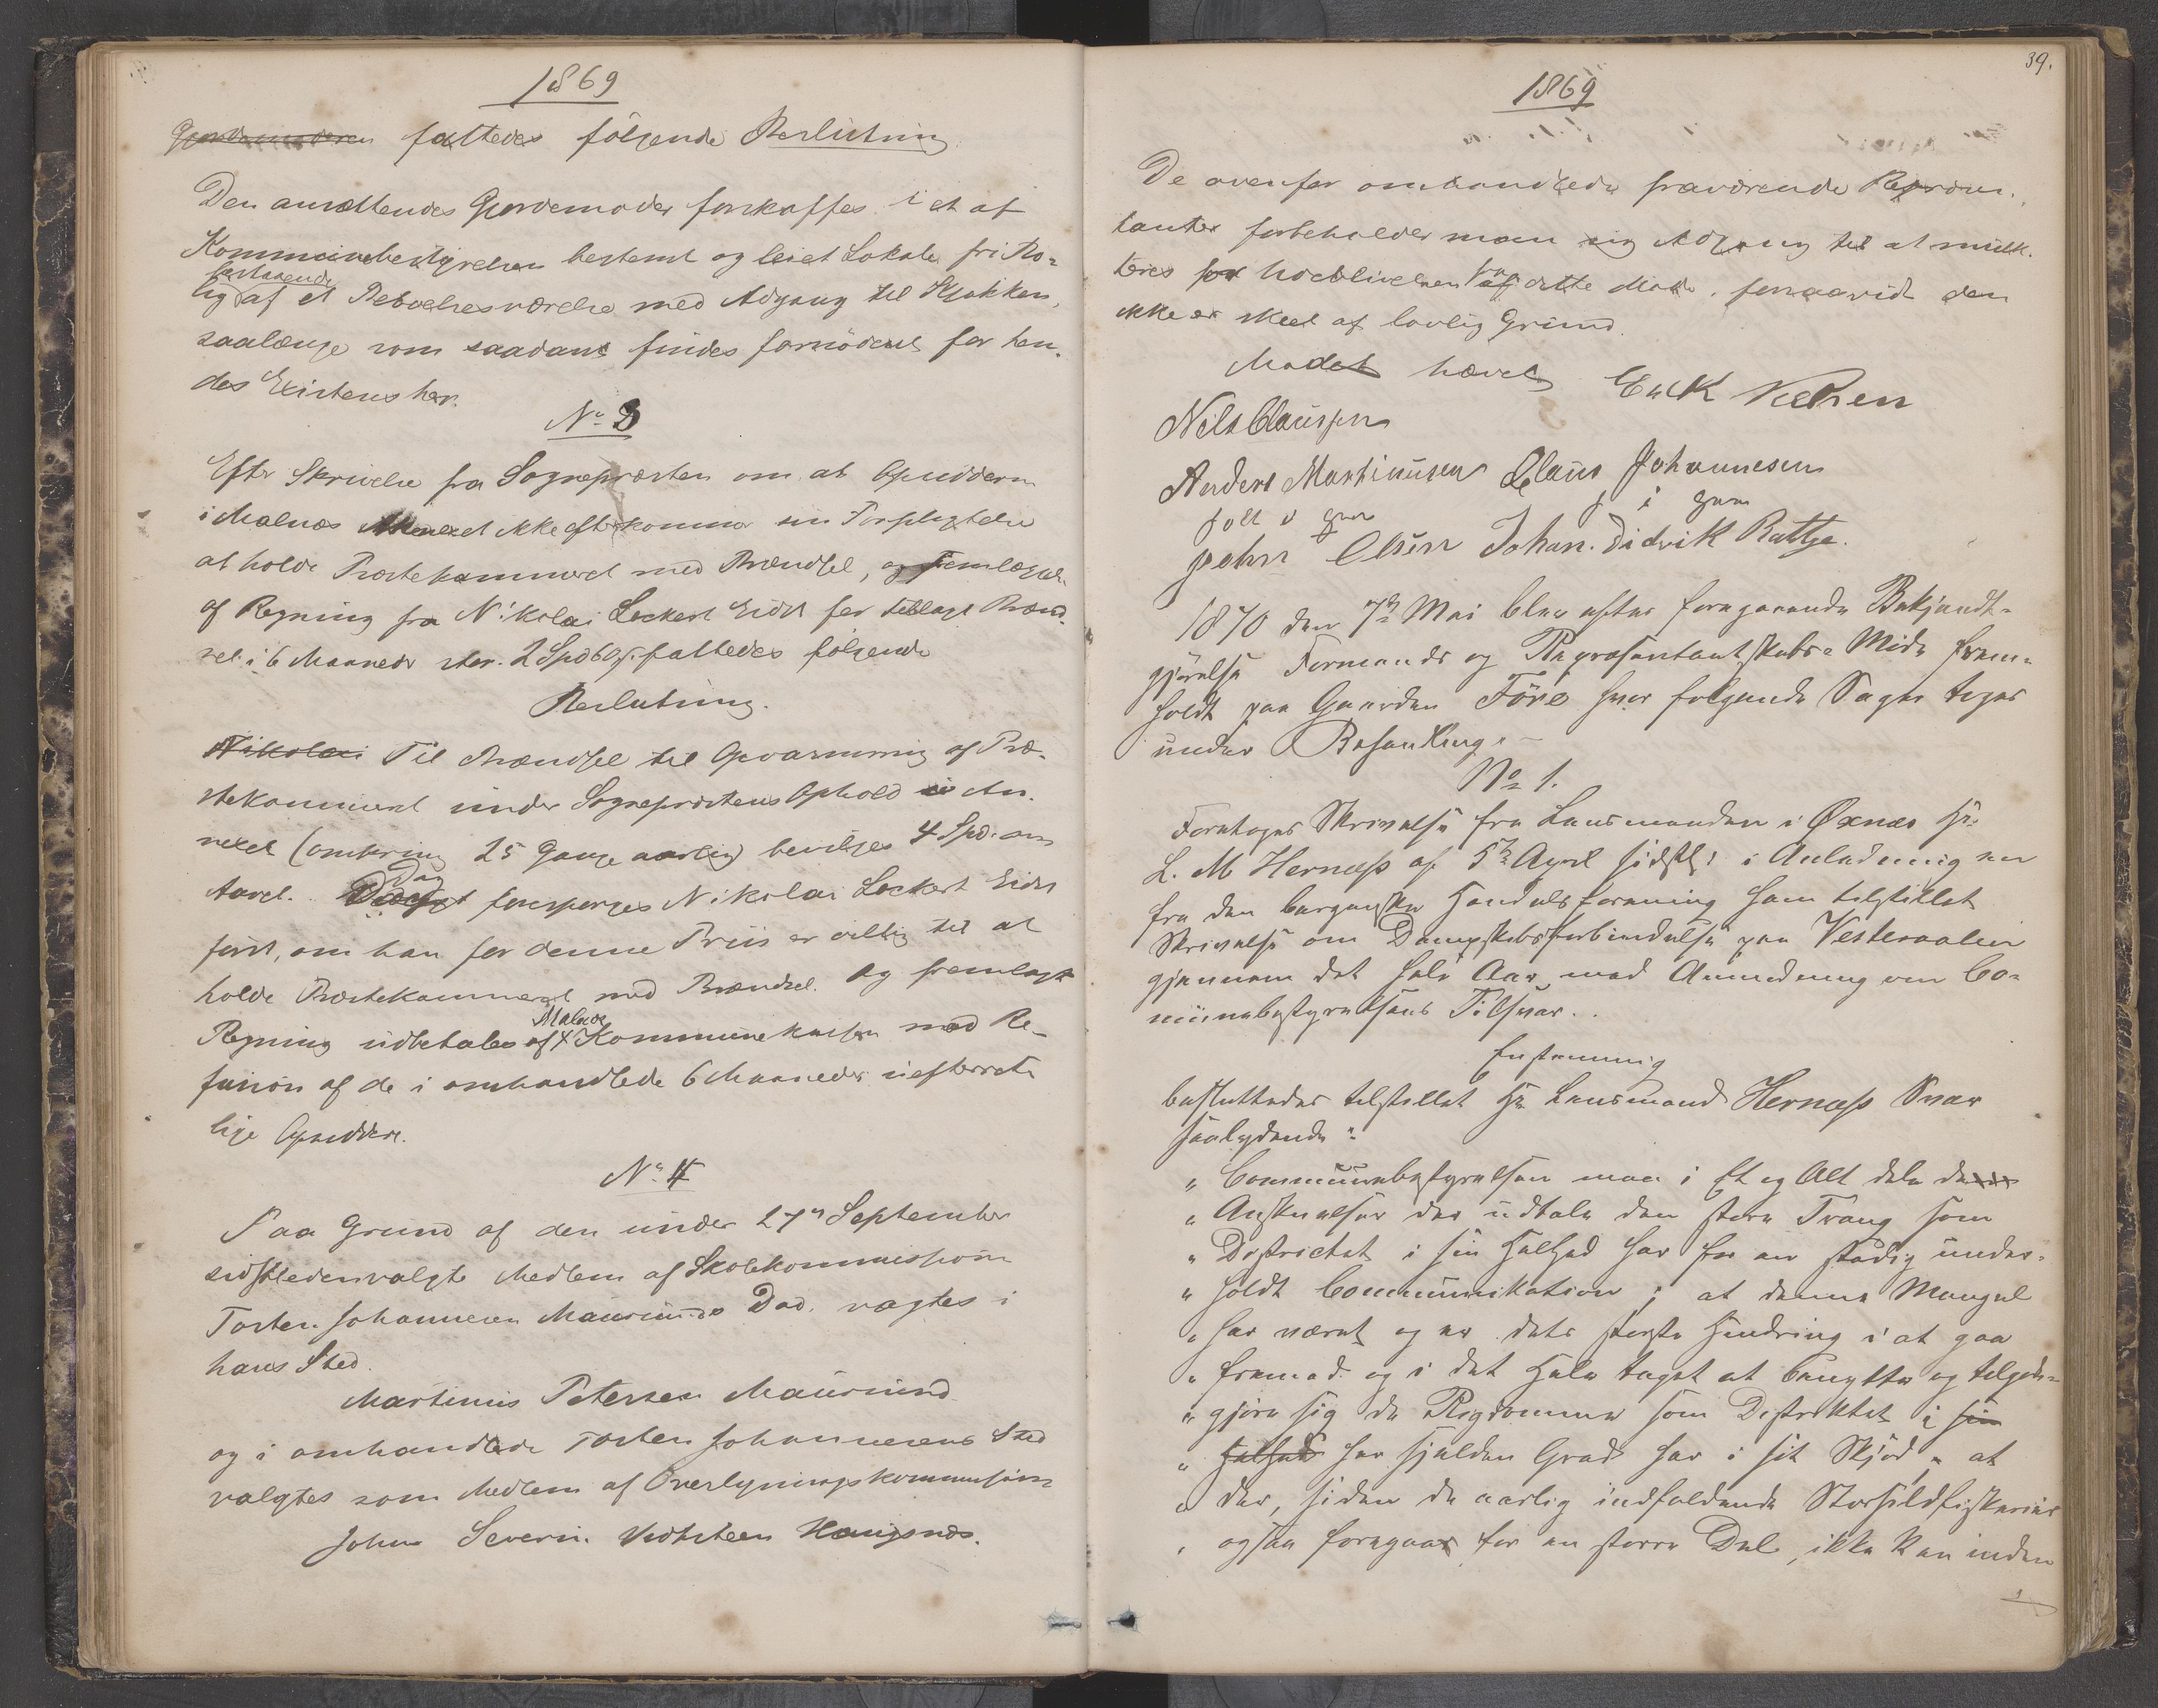 1869
Gjordemoderen fattedes følgende Beslutning
Den ansættendes Gjordemoder forskaffes i et af
Kommunebestyrelsen bestemt og leiet Lokale fri Bo-
lig bestaaende af et Beboelsesværelse med Adgang til Kjøkken,
saalænge som saadant findes fornødent for hen-
des Existens her.
No 3
Efter Skrivelse fra Sognepræsten om at Opsidderne
i Malnæs Annexet ikke efterkommer sin Forpligtelse
at holde Præstekammeret med Brændsel, og Fremlæggelse
af Regning fra Nikolai Lockert Eidet for tillagt Brænd-
sel i 6 Maaneder stor. 2 Spd 60 s. fattedes følgende
Beslutning.
Nikolai Til Brændsel til Opvarmning af Præ-
stekammeret under Sognepræstens Ophold i An-
nexet (omkring 25 Gange aarlig) bevilges 4 Spd. om
Aaret. Dog forespørges Nikolai Lockert Eidet
først, om han for denne Priis er villig til at
holde Præstekammeret med Brændsel. Og fremlagt
Regning udbetales af Malnæs Kommunekasse med Re-
fusion af de i omhandlede 6 Maaneder uefterrette-
lige Opsiddere.
No 4
Paa Grund af den under 27de September
sidstleden valgte Medlem af Skolekommissionen
Torsten Johannesen Maursunds Død, valgtes i
hans Sted.
Martinus Petersen Maursund
og i omhandlede Torsten Johannesens Sted
valgtes som Medlem af Overligningskommissionen
Johan Severin Vedsteen Haugsnæs.
39.
1869
De ovenfor omhandlede fraværende Repræsen-
tanter forbeholder man sig Adgang til at mulk-
teres for Udeblivelsen fra dette Møde, forsaavidt den
ikke er skeet af lovlig Grund.
Mødet hævet
Nils Claussen
Anders Martinussen Claus Johannesen
John Olsen Johan Didrik Rattje.
1870 den 7de Mai blev efter foregaaende Bekjendt-
gjørelse Formands og Repræsentantskabs-Møde frem-
holdt paa Gaarden Føre hvor følgende Sager toges
under Behandling.
No 1.
Foretoges Skrivelse fra Lensmanden i Øxnæs Hr.
L. M Hernæss af 5te April sidstl. i Anledning en
fra den bergenske Handelsforening ham tilstillet
Skrivelse om Dampskibsforbindelse paa Vesteraalen
gjennem det hele Aar med Anmodning om Co-
munebestyrelsens Tilsvar.
Enstemmig
besluttedes tilstillet Hr. Lensmand Hernæss Svar
saalydende:
" Communebestyrelsen maa i Et og Alt dele de
" Anskuelser der udtale den store Trang som
" Districtet i sin Helhed har for en stadig under-
" holdt Communikation; at denne Mangel
" har været og er dets største Hindring i at gaa
" fremad og i det Hele taget at benytte og tilgode-
" gjøre sig de Rigdomme som Distriktet i sin
" Helhed har sjelden Grad har i sit Skjød, at
" der, siden de aarlig indfaldende Storsildfiskerier
" ogsaa foregaar for en større Del, ikke kan inden